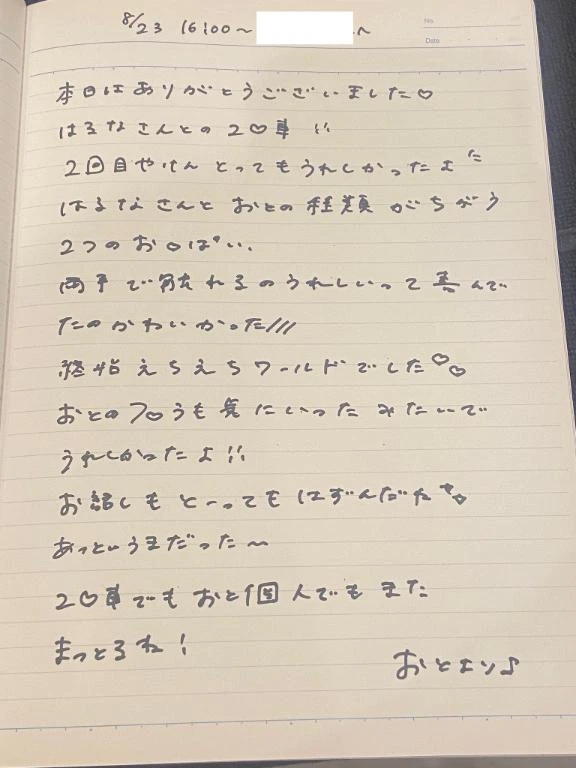 8/23 16:00〜 へ
No.
Date
本日はありがとうございました♡
はるなさんとの2♡車!!
2回目やけんとってもうれしかったよ
はるなさんとおとの種類がちがう
2つのお○ぱい、
両手で触れるのうれしいって喜んで
たのかわいかった///
終始えちえちワールドでした♡♡
おとのフ○うも気にいったみたいで
うれしかったよ!!
お話しもとーってもはずんだね♡
あっというまだった〜
2♡車でもおと個人でもまた
まっとるね!
おとより♪